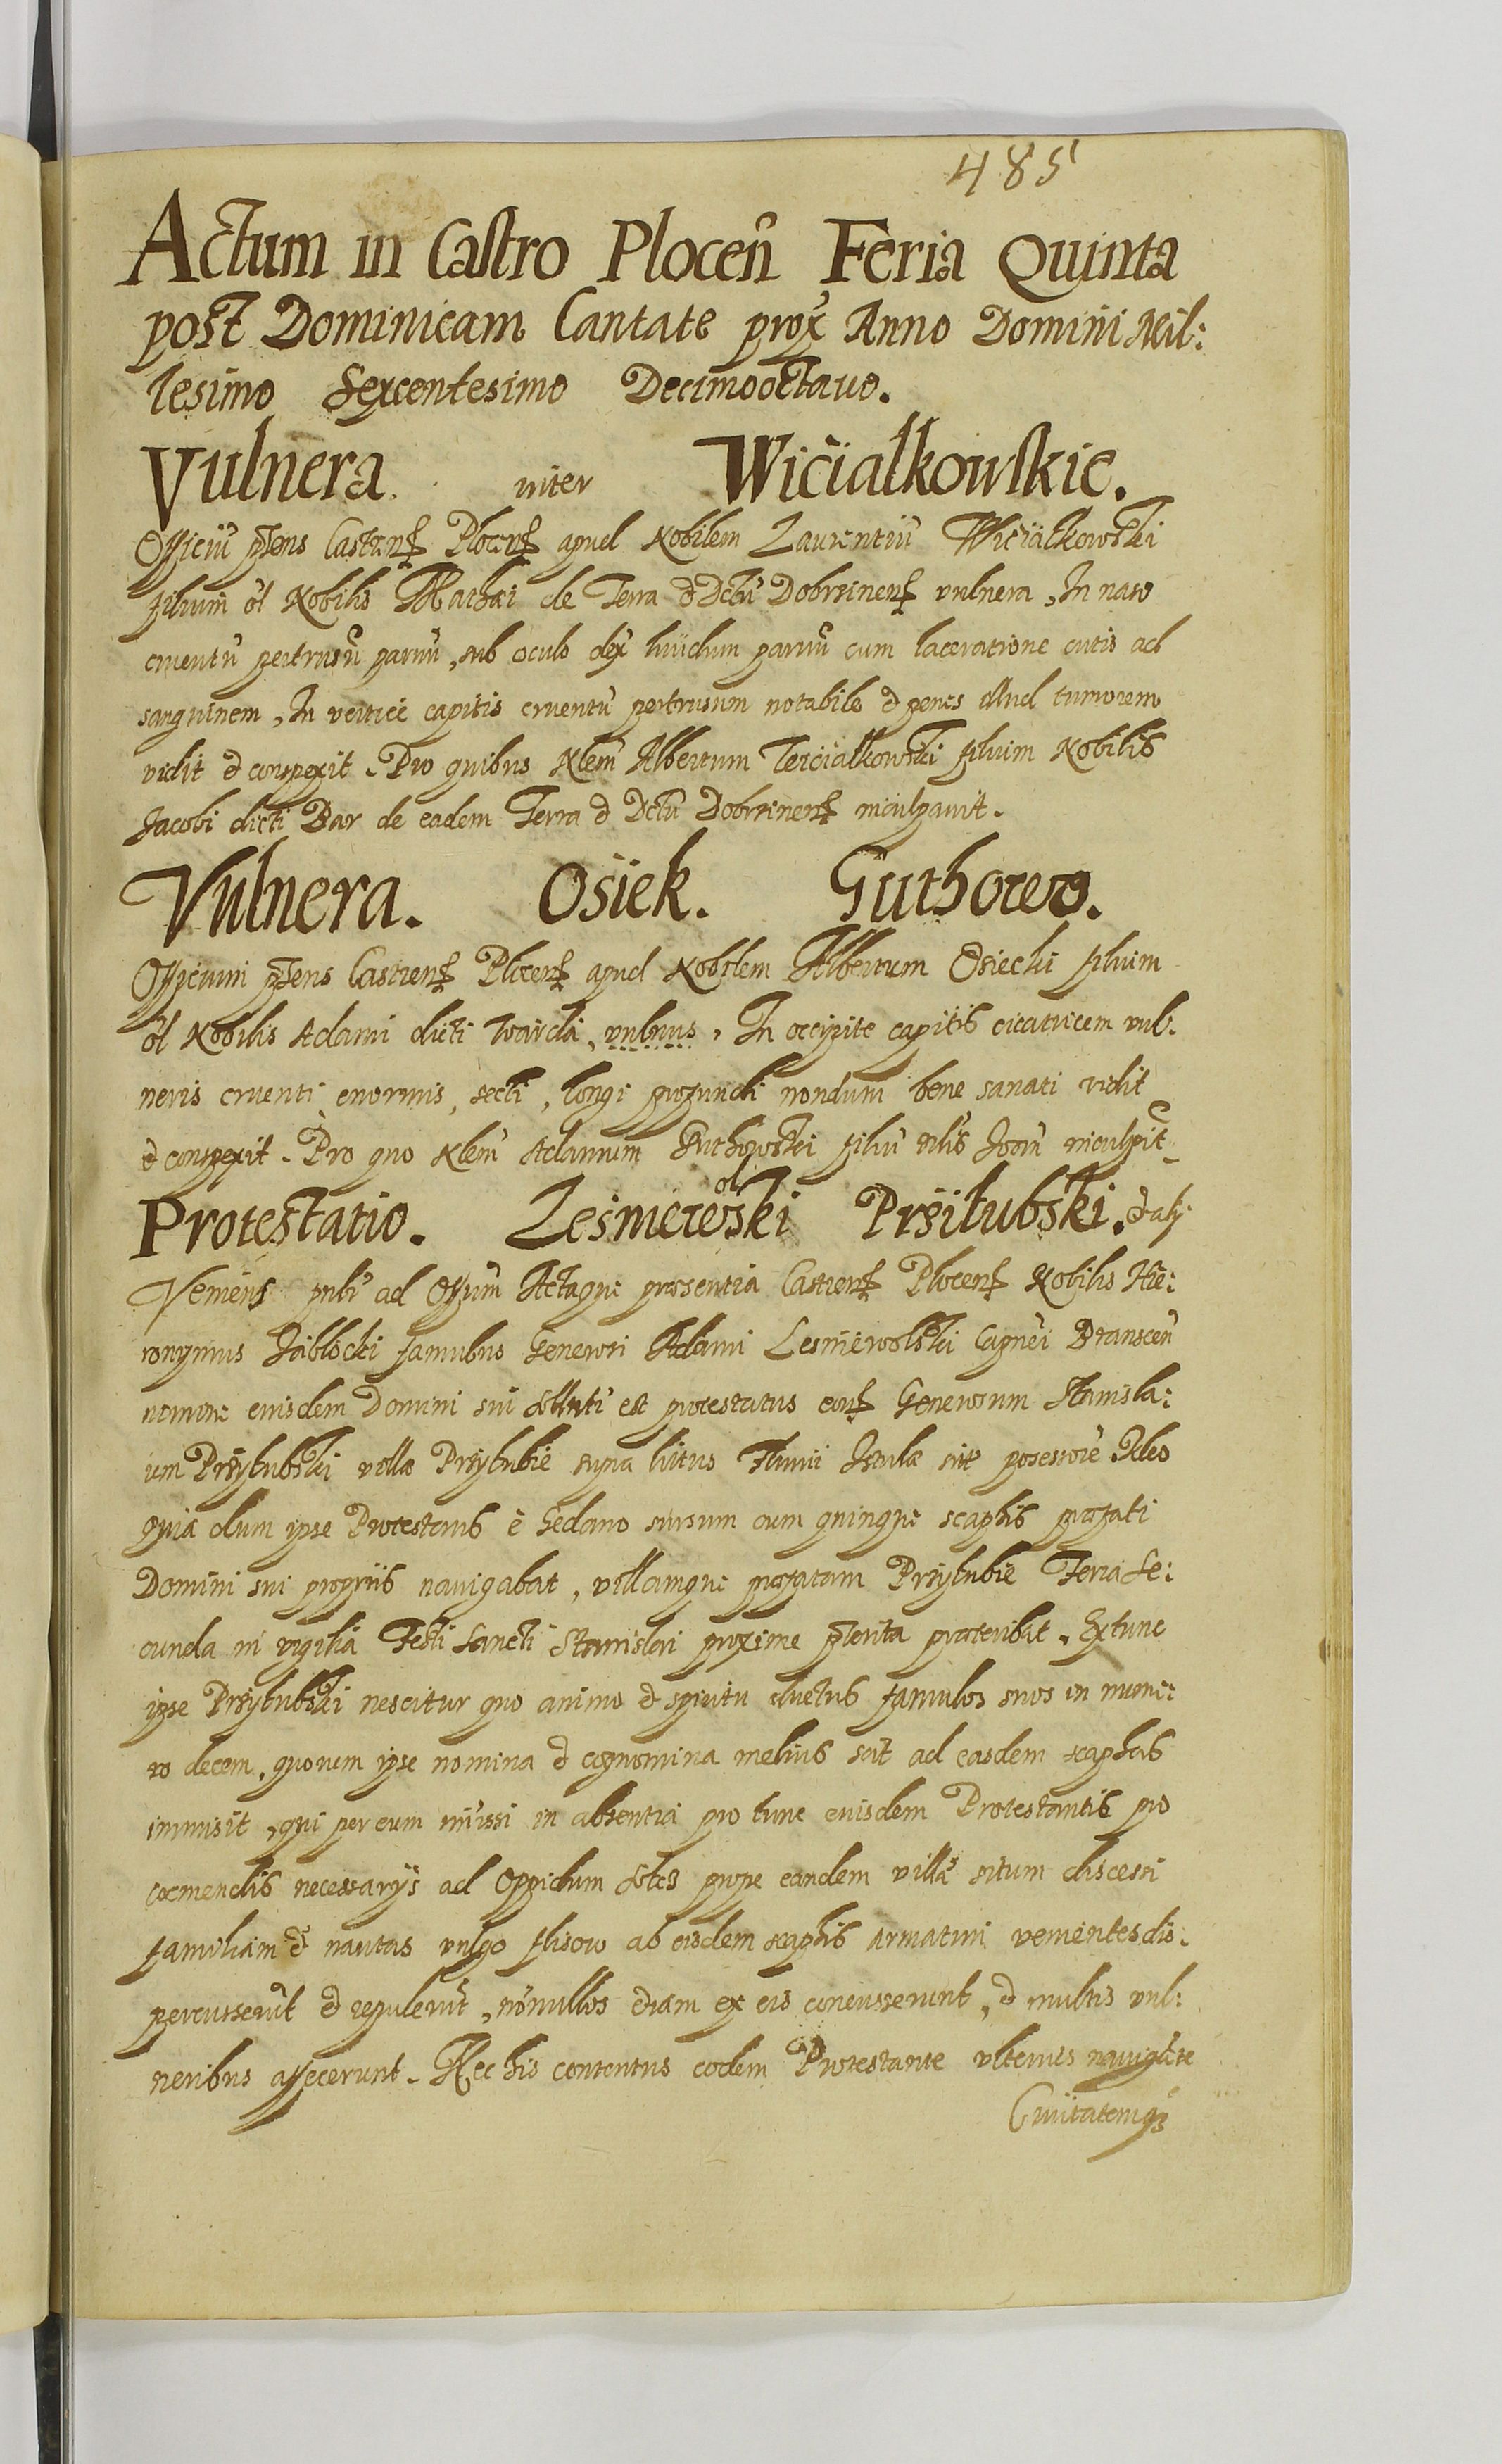 485
Actum in Castro Plocen̄ Feria Quinta
post Dominicam Cantate prox̄ Anno Domini Mil:
lesimo Sexcentesimo Decimooctauo.
Vulnera. inter Wiciałkowskie.
Officiū p̄sens Castren̄ Plocen̄ apud Nobilem Laurentiū Wiciałkowski
filium ol Nobilis Mathæi de Terra et Dctū Dobrzinen̄ vulnera, In naso
cruentū pertrusū paruū, sub oculo dex̄ liuidum paruū cum laceratione cutis ad
sanguinem, In vertice capitis cruentū pertrusum notabile et penes illud tumorem
vidit et conspexit. Pro quibus Nlem̄ Albertum Wiciałkowski filium Nobilis
Jacobi dicti Dar de eadem Terra et Dctū Dobrzinen̄ inculpauit.
Vulnera. Osiek. Guthowo.
Officium p̄sens Castren̄ Plocen̄ apud Nobilem Albertum Osiecki filium
ol Nobilis Adami dicti Warda, vulnus, In occipite capitis cicatricem vul:
neris cruenti enormis, secti, longi profundi nondum bene sanati vidit
et conspexit. Pro quo Nlem̄ Adamum Guthowski filiū Nlis Joān̄ inculpūit
Protestatio. Lesniewolski Przilubski. et alÿ
Veniens pnlr̄ ad Offum̄ Actaque præsentia Castren̄ Plocen̄ Nobilis Hie:
ronymus Jabłocki famulus Generosi Adami Lesniewolski Capnei Branscen̄
nomine eiusdem Domini sui sollnti est protestatus con̄ Generosum Stanisla:
um Przyłubski villæ Przyłubie supra littus Fluuii Istulæ sitæ posessorē Ideo
quia dum ipse Protestans è Gedano sursum cum quinque scaphis præfati
Domini sui propriis nauigabat, villamque præfatam Przyłubie Feria Se:
cunda in vigilia Festi Sancti Stanislai proxime p̄terita præteribat. Extunc
ipse Przyłubski nescitur quo animo et spiritu ductus famulos suos in nume:
ro decem, quorum ipse nomina et cognomina melius scit ad easdem scaphas
immisit, qui per eum missi in absentia pro tunc eiusdem Protestantis pro
coemendis necessarÿs ad Oppidum Solec prope eandem villā situm discessi
familiam et nautas vulgo flisow ab eisdem scaphis armatim venientes dis:
percusserūt et repulerūt, nōnullos etiam ex eis concusserunt, et multis vul:
neribus affecerunt. Nec his contentus eodem Protestante vlterius nauigare
Ciuitatemq3